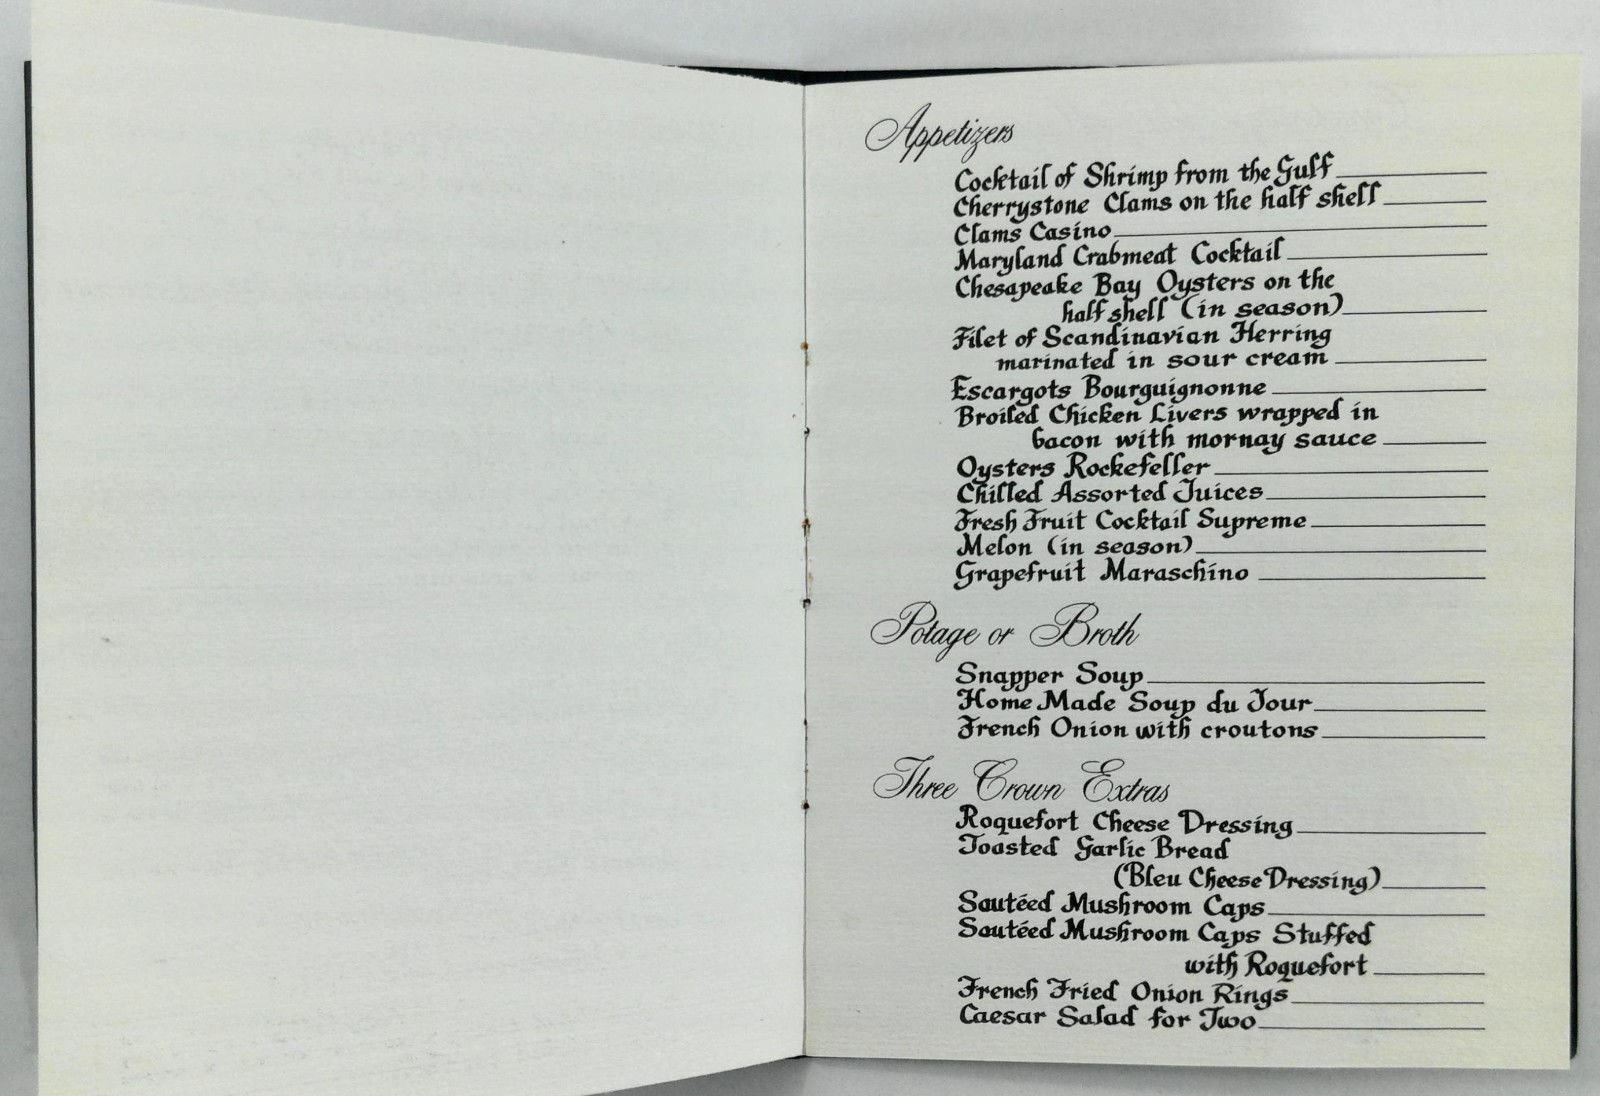 Appetizers
Cocktail of Shrimp from the Gulf
Cherrystone Clams on the half shell
Clams Casino
Maryland Crabmeat Cocktail
Chesapeake Bay Oysters on the
half shell (in season)
Filet of Scandinavian Herring
marinated in sour cream
Escargots Bourguignonne
Broiled Chicken Livers wrapped in
bacon with mornay sauce
Oysters Rockefeller
Chilled Assorted Juices
Fresh Fruit Cocktail Supreme
Melon (in season)
Grapefruit Maraschino
Potage or Broth
Snapper Soup
Home Made Soup du Jour
French Onion with croutons
Three Crown Extras
Roquefort Cheese Dressing
Toasted Garlic Bread
(Bleu Cheese Dressing)
Sautéed Mushroom Caps
Sautéed Mushroom Caps Stuffed
with Roquefort
French Fried Onion Rings
Caesar Salad for Two